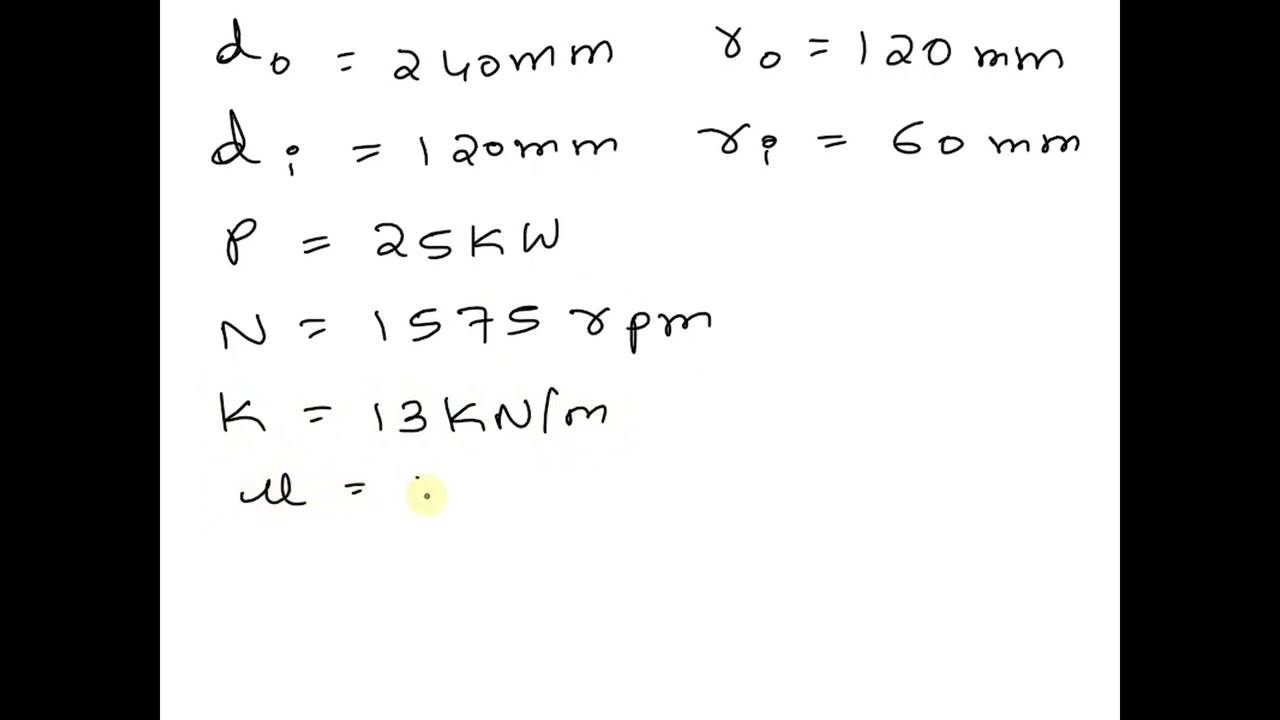 do = 240mm ro = 120 mm
di = 120mm ri = 60 mm
P = 25KW
N = 1575 rpm
K = 13KN/m
μ =